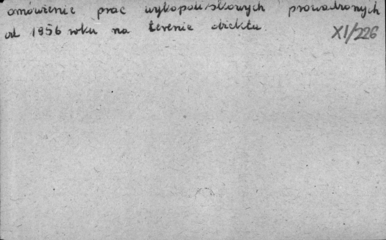 omówienie prac wykopaliskowych prowadzonych
od 1956 roku na terenie obiektu
XI/226